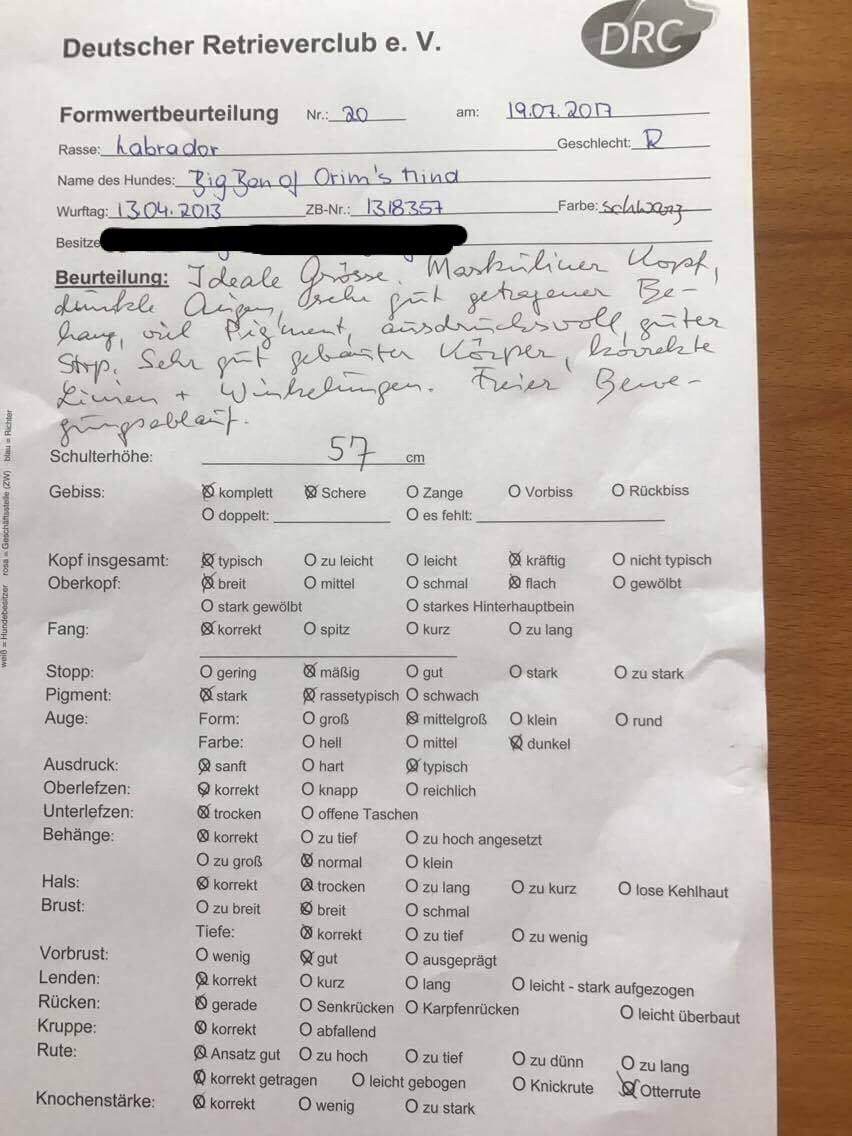 Deutscher Retrieverclub e. V.
DRC
Formwertbeurteilung Nr.: 20 am: 19.07.2017
Rasse: Labrador Geschlecht: R
Name des Hundes: Big Ben of Orim's Mind
Wurftag: 13.04.2013 ZB-Nr.: 1318357 Farbe: schwarz
Besitze
Beurteilung: Ideale Grösse. Maskuliner Kopf,
dunkle Augen, sehr gut getragener Be-
hang, viel Pigment, ausdrucksvoll, guter
Stop. Sehr gut gebauter Körper, korrekte
Linien + Winkelungen. Freier Bewe-
gungsablauf.
Schulterhöhe: 57 cm
Gebiss: komplett Schere Zange Vorbiss Rückbiss
doppelt: es fehlt:
Kopf insgesamt: typisch zu leicht leicht kräftig nicht typisch
Oberkopf: breit mittel schmal flach gewölbt
stark gewölbt starkes Hinterhauptbein
Fang: korrekt spitz kurz zu lang
Stopp: gering mäßig gut stark zu stark
Pigment: stark rassetypisch schwach
Auge: Form: groß mittelgroß klein rund
Farbe: hell mittel dunkel
Ausdruck: sanft hart typisch
Oberlefzen: korrekt knapp reichlich
Unterlefzen: trocken offene Taschen
Behänge: korrekt zu tief zu hoch angesetzt
zu groß normal klein
Hals: korrekt trocken zu lang zu kurz lose Kehlhaut
Brust: zu breit breit schmal
Tiefe: korrekt zu tief zu wenig
Vorbrust: wenig gut ausgeprägt
Lenden: korrekt kurz lang leicht - stark aufgezogen
Rücken: gerade Senkrücken Karpfenrücken leicht überbaut
Kruppe: korrekt abfallend
Rute: Ansatz gut zu hoch zu tief zu dünn zu lang
korrekt getragen leicht gebogen Knickrute Otterrute
Knochenstärke: korrekt wenig zu stark
weiß = Hundebesitzer rosa = Geschäftsstelle (ZW) blau = Richter